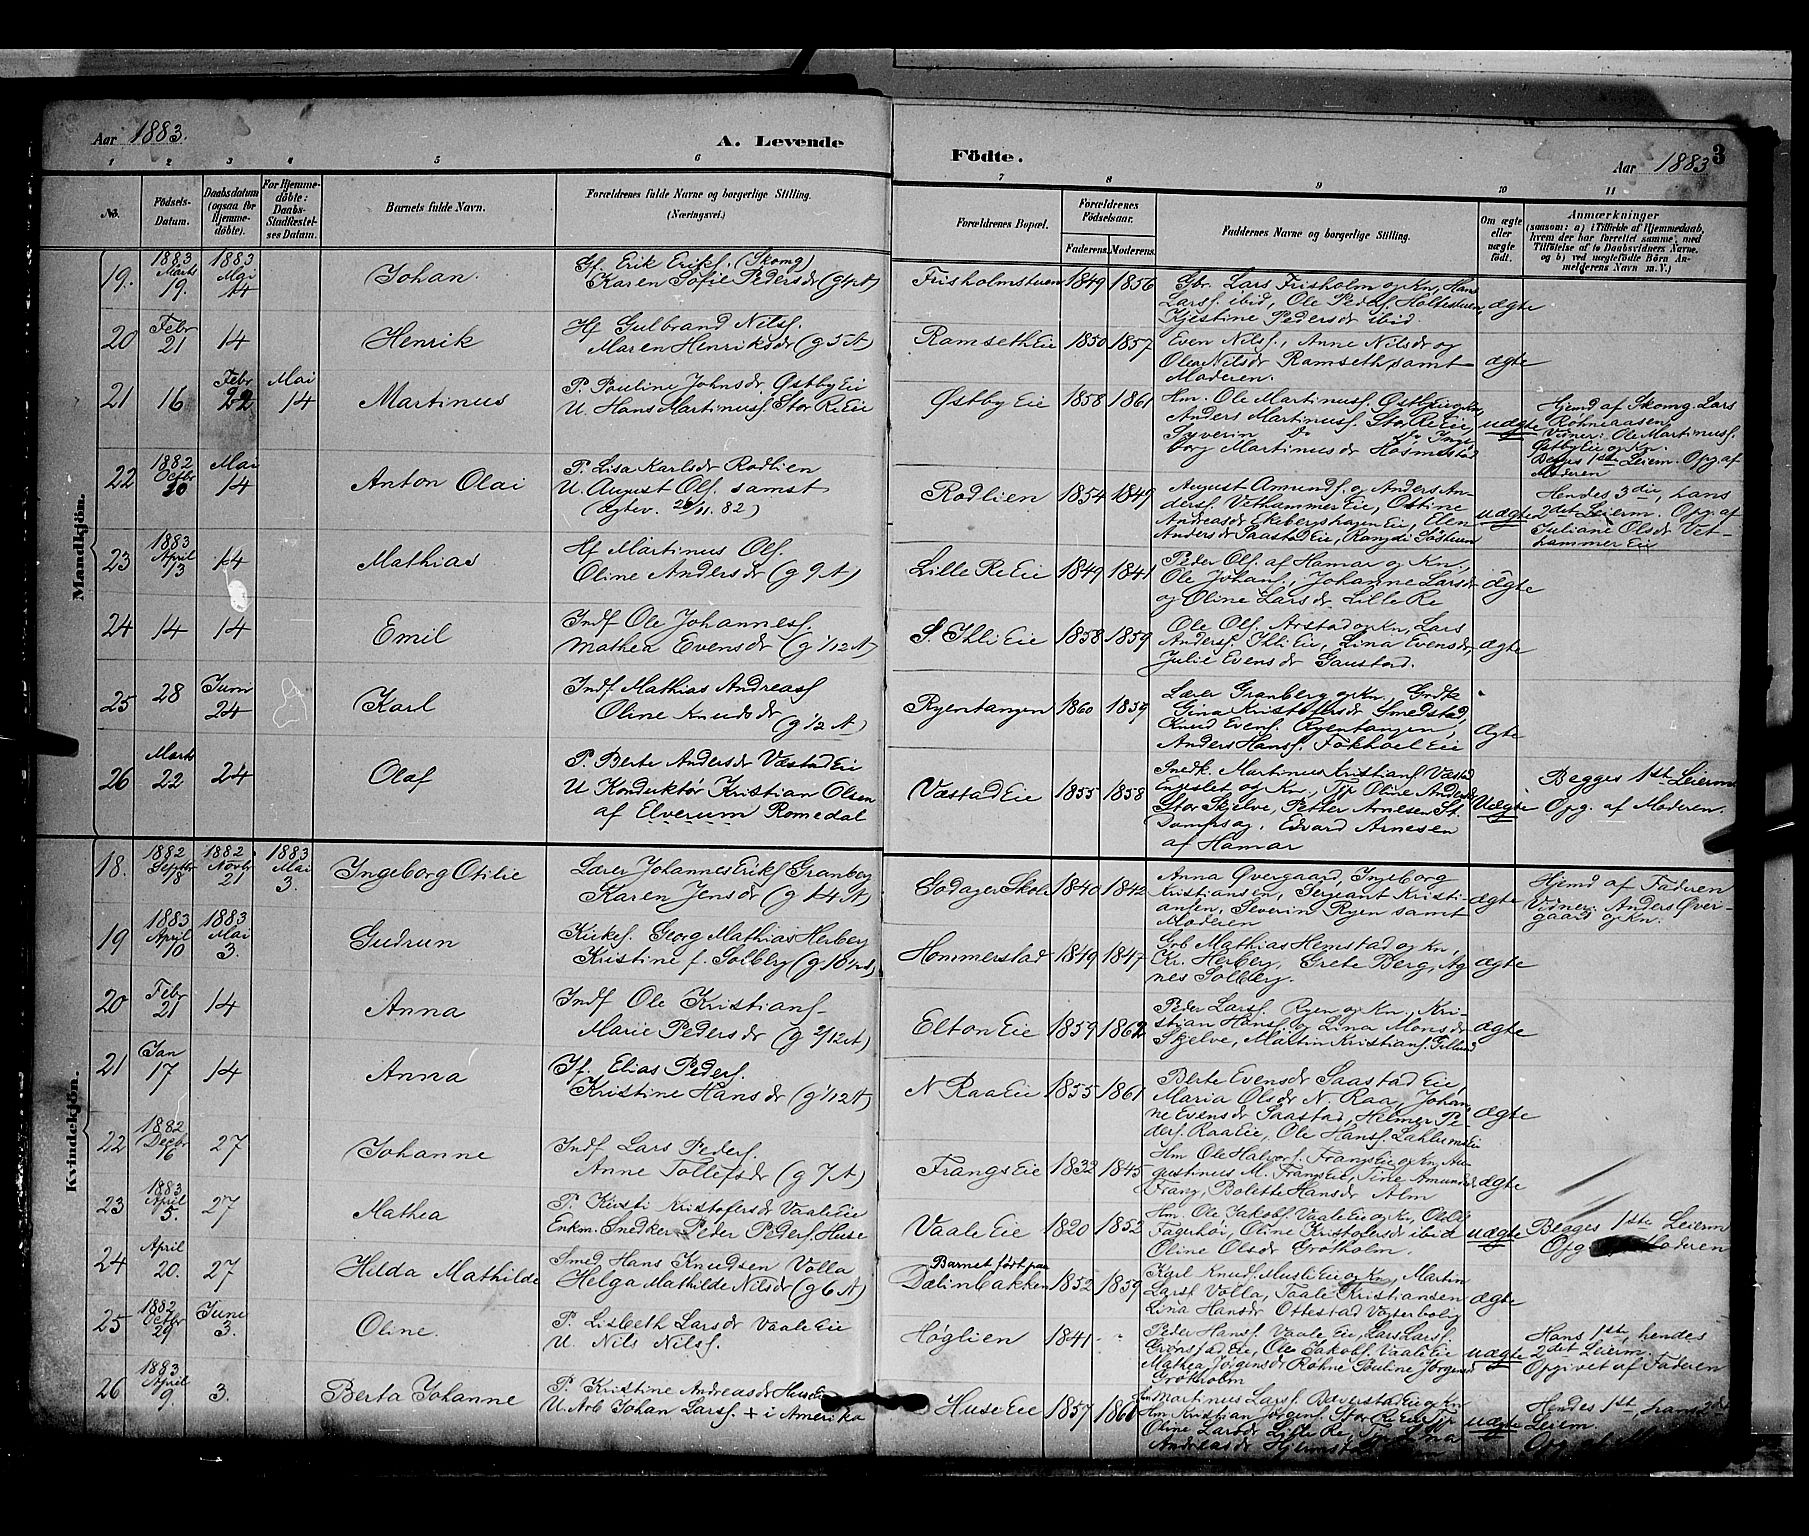 Aar 1883.
A. Levende
Födte.
Aar 1883
3
1 2 3 4 5 6 7 8 9 10 11
No.
Födsels-
Datum.
Daabsdatum
(ogsaa for
Hjemme-
döbte).
For Hjemme-
döbte:
Daabs-
Stadfæstel-
ses Datum.
Barnets fulde Navn.
Forældrenes fulde Navne og borgerlige Stilling.
(Næringsvei.)
Forældrenes Bopæl.
Forældrenes
Födselsaar.
Faderens.
Moderens.
Faddernes Navne og borgerlige Stilling.
Om ægte
eller
uægte
født.
Anmærkninger
(saasom: a) i Tilfælde af Hjemmedaab,
hvem der har forrettet samme, med
Tilföielse af to Daabsvidners Navne,
og b) ved uægtefödte Börn An-
melderens Navn m. V.)
Mandkjön.
19. 1883 Marts 19. 1883 Mai 14 Johan.
Gf. Erik Eriks. (Skomg)
Karen Sofie Pedersdr (g 4 A)
Frisholmstuen 1849 1856
Gbr. Lars Frisholm og Kn, Hans
Larsf ibid, Ole Pedf
Kjestine Pedersdr ibid.
ægte
20 Febr 21 14 Henrik
Hf Gulbrand Nilsf.
Maren Henriksdr (g 5 A)
Ramseth Eie 1850 1857
Even Nilsf., Anne Nilsdr og
Olea Nilsdr Ramseth samt
Moderen.
ægte
21 16 Febr 22 Mai 14 Martinus
P. Pauline Johnsdr Østby Eie
U. Hans Martinusf. Stor Re Eie
Østby Eie 1858 1861
Hm. Ole Martinusf. Østby Eie og Kn,
Anders Martinusf. Stor Re Eie,
Syverin Do Do Inge
borg Martinusdr Hosmestad
uægte
Hjemd af Skomg. Lars
Røhneaasen
Vidner: Ole Martinusf.
Østby Eie og Kn.
Begges 1ste Leierm. Opg. af
Moderen
22 1882 Octbr 30 Mai 14 Anton Olai
P. Lisa Karlsdr Rodlien
U. August Olf. samst
(Egtev. 26/11. 82)
Rodlien 1854 1849
August Amundf. og Anders An-
dersf. Vethammer Eie, Ostine
Andreasdr Ekebergshagen Eie, Elen
Andersdr Saastad Eie,
uægte
Hendes 3die, hans
2det Leierm. Opg. af
Juliane Olsdr Vet-
hammer Eie
23 1883 April 13 14 Mathias
Hf Martinus Olf.
Oline Andersdr (g 9 A)
Lille Re Eie 1849 1841
Peder Olf. af Hamar og Kn,
Ole Johanf., Johanne Larsdr
og Oline Larsdr Lille Re
ægte
24 14 14 Emil
Indf Ole Johannesf.
Mathea Evensdr (g 1/12 A)
S. Ihli Eie 1858 1859
Ole Olf. Arstad og Kn, Lars
Andersf. Ihli Eie, Lina Evensdr,
Julie Evensdr Gaustad.
ægte
25 28 Juni 24 Karl
Indf Mathias Andreasf
Oline Knudsdr
(g 1/2 A)
Ryentangen 1860 1859
Lærer Granberg og Kn, Grdk
Gina Kristofersdr Smedstad,
Knud Evenf. Ryentangen,
Anders Hansf. Fokhoel Eie
ægte
26 Marts 22 24 Olaf
P. Berte Andersdr Væstad Eie
U Konduktør Kristian Olsen
af Elverum Romedal
Væstad Eie 1855 1858
Snedk. Martinus Kristianf Væstad
Oline Andersdr
Stor Skjelve, Petter Arnesen St.
Dampsag, Edvard Arnesen
af Hamar
Uægte
Begges 1st Leierm
Opg. af Moderen.
Kvindekjön.
18. 1882 Septbr 18 1882 Novbr 21 1883 Mai 3. Ingeborg Otilie
Lærer Johannes Eriks Granberg
Karen Jensdr (g 14 A)
Sodager Skole 1840 1842
Anna Øvergaard, Ingeborg
Kristiansen, Sergeant Kristi-
ansen, Severin Ryen samt
Moderen
ægte
Hjemd af Faderen
Vidner: Anders Øver-
gaard og Kn.
19 1883 April 10 1883 Mai 3. Gudrun
Kirkes. Georg Mathias Herberg
Kristine f. Solberg (g 10 A)
Hommerstad 1849 1847
Grb Mathias Hemstad og Kn,
Kr. Herberg, Grete Berg, Ag
nes Solberg.
ægte
20 Febr 21 14 Anna
Indf Ole Kristianf
Marie Pedersdr (g 2/12 A)
Elton Eie 1859 1862
Peder Larsf. Ryen og Kn, Kri-
stian Hansf. og Lina Monsdr
Skjelve, Martin Kristianf.
ægte
21 Jan 17 14 Anna
If. Elias Pedersf.
Kristine Hansdr (g 1/12 A)
N Raa Eie 1855 1861
Berte Evensdr Saastad Eie,
Maria Olsdr N. Raa, Johan-
ne Evensdr Saastad, Helmer Pe-
dersf. Raa Eie, Ole Hansf. Lahlum Eie
ægte
22 1882 Decbr 6 27 Johanne
Indf Lars Pedersf.
Anne Tollefsdr (g 7 A)
Frangs Eie 1832 1845
Hm Ole Halvorf. Frangs Eie og Kn, Au-
gustinus M. Frangs Eie, Tine Amundsdr
Frang, Bolette Hansdr Alm
ægte
23 1883 April 5. 27 Mathea
P. Kirsti Kristofersdr Vaale Eie
Enkm. Snedker Peder Pedersf. Huse
Vaale Eie 1820 1852
Hm. Ole Jakobf. Vaale Eie og Kn,
Fagerhøi, Oline Kristofersdr ibid
Oline Olsdr Grotholm.
uægte
Begges 1ste Leierm
Opg Moderen
24 April 20. 27 Hilda Mathilde
Smed Hans Knudsen Volla
Helga Mathilde Nilsdr (g 6 A)
Barnet født paa
Dælinbakken 1852 1859
Karl Knudf. Musli Eie og Kn, Martin
Larsf Volla, Taale Kristiansen
Lina Hansdr Ottestad
ægte
25 1882 Octbr 29 Juni 3. Oline.
P. Lisbeth Larsdr Vaale Eie
U. Nils Nilsf.
Høglien 1841 "
Peder Hansf. Vaale Eie, Lars Larsf.
Grønstad Eie, Ole Jakobf. Vaale Eie
Mathea Jørgensdr Røhne Pauline Jørgensdr
Grotholm
uægte
Hans 1ste, hendes
2det Leierm.
Opgivet af Faderen
26 1883 April 9. 3. Berta Johanne
P. Kristine Andreasdr Huse Eie
U. Arb Johan Larsf. + i Amerika
Huse Eie 1857 1860
Hm Martinus Larsf. og Kn
Hm Kristian Jørgensf. Stor Re Eie
Oline Larsdr Lille Re,
Andreasdr
uægte
Hendes 1st, hans 2det
Leierm.
Opg. af